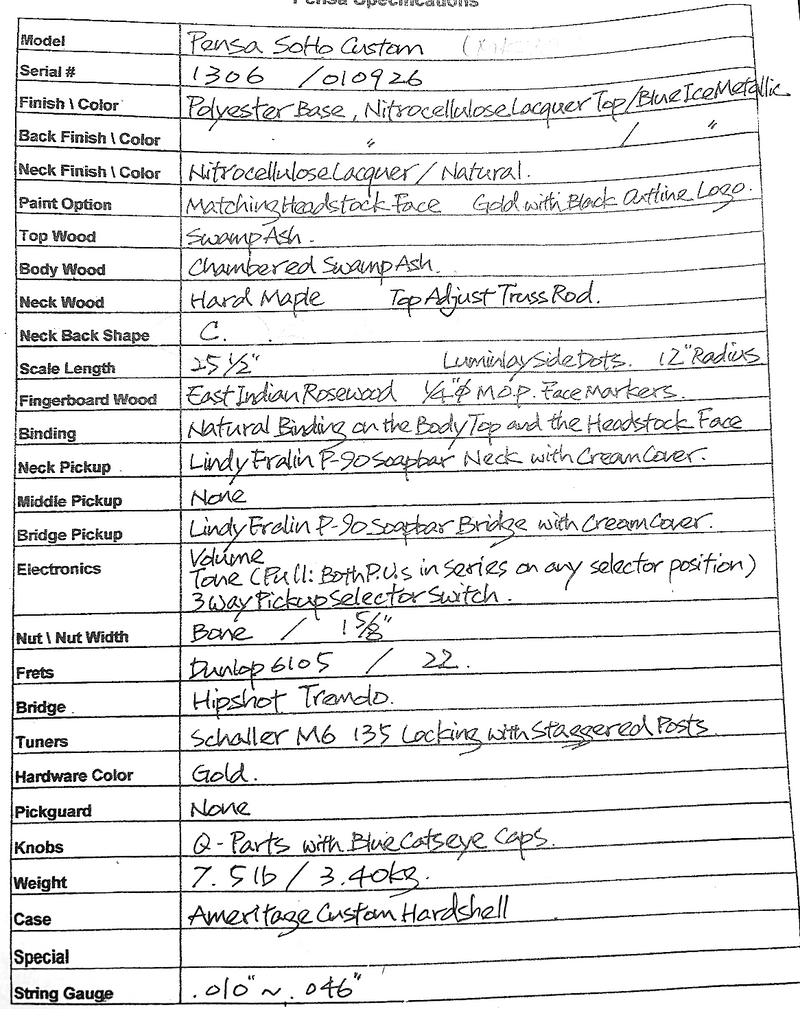 Pensa Specifications
Model Pensa SoHo Custom
Serial # 1306 /010926
Finish \ Color Polyester Base, Nitrocellulose Lacquer Top/Blue Ice Metallic
Back Finish \ Color " / "
Neck Finish \ Color Nitrocellulose Lacquer / Natural.
Paint Option Matching Headstock Face Gold with Black Outline Logo.
Top Wood Swamp Ash.
Body Wood Chambered Swamp Ash.
Neck Wood Hard Maple Top Adjust Truss Rod.
Neck Back Shape C.
Scale Length 25 1/2" Luminlay Side Dots. 12" Radius
Fingerboard Wood East Indian Rosewood 1/4"φ M.O.P. Face Markers.
Binding Natural Binding on the Body Top and the Headstock Face
Neck Pickup Lindy Fralin P-90 Soapbar Neck with Cream Cover.
Middle Pickup None
Bridge Pickup Lindy Fralin P-90 Soapbar Bridge with Cream Cover.
Electronics Volume
Tone (Pull: Both P.U.s in series on any selector position)
3 way Pickup Selector Switch.
Nut \ Nut Width Bone / 1 5/8"
Frets Dunlop 6105 / 22.
Bridge Hipshot Tremolo.
Tuners Schaller M6 135 Locking with Staggered Posts
Hardware Color Gold.
Pickguard None
Knobs Q-Parts with Blue Catseye Caps.
Weight 7.5 lb / 3.40kg.
Case Ameritage Custom Hardshell
Special
String Gauge .010" ~ .046"